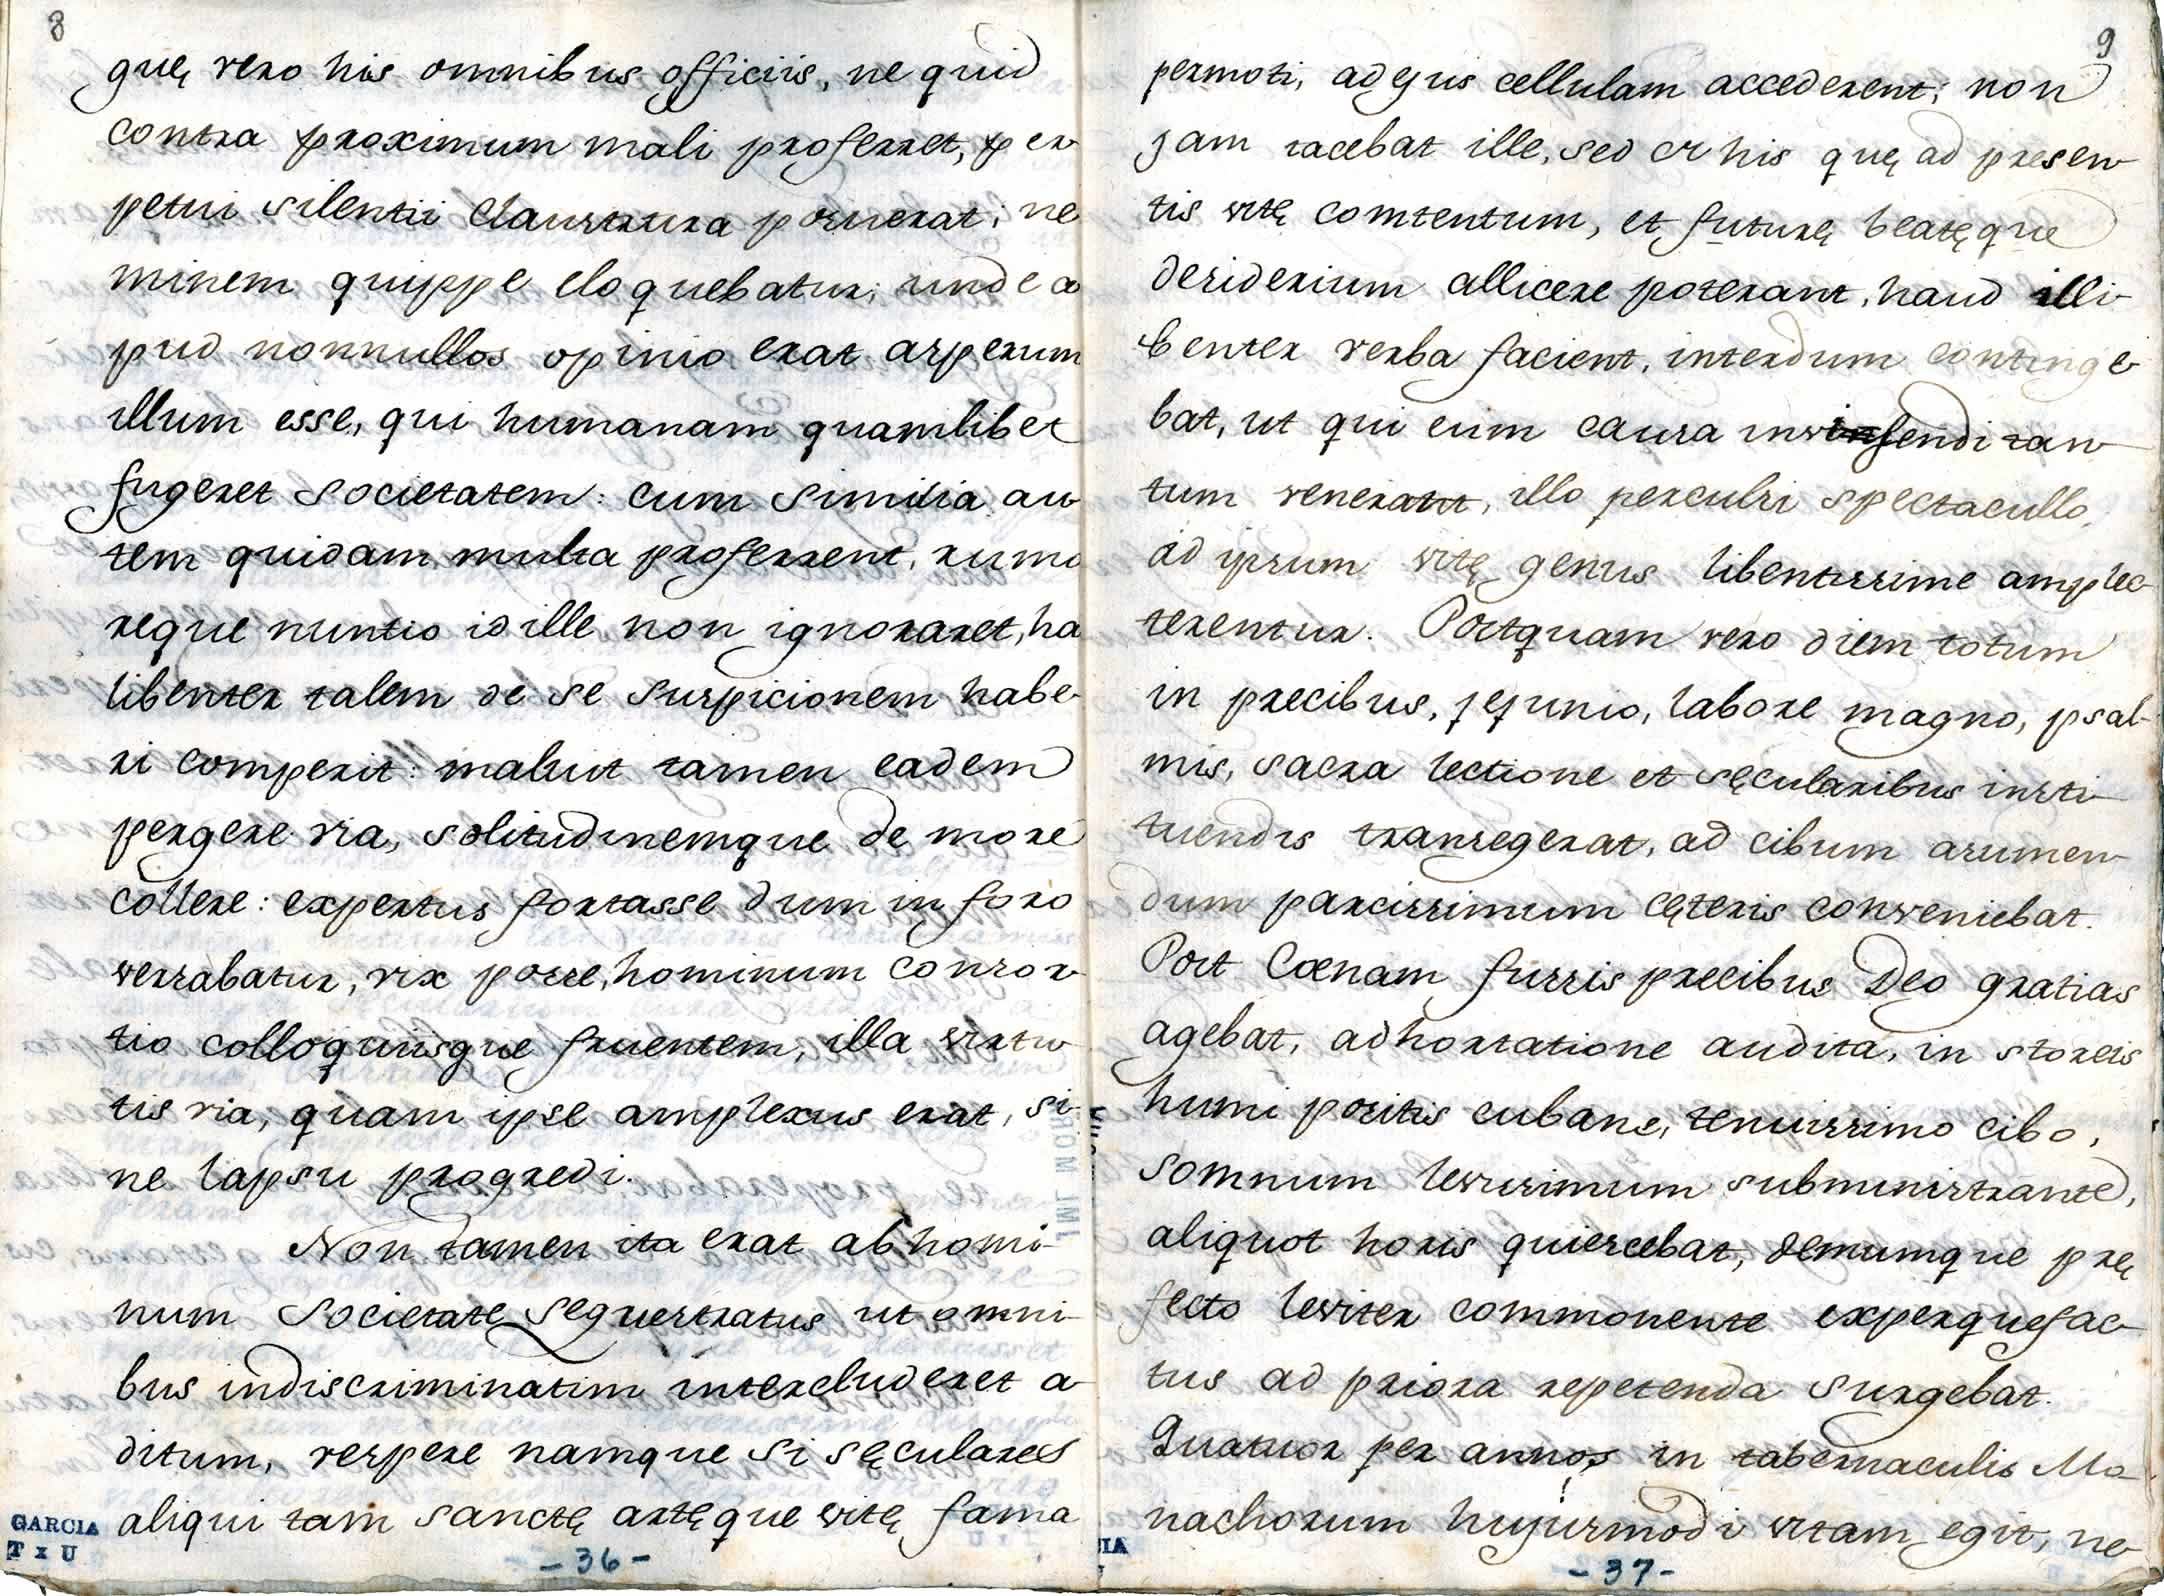 8
quę vero his omnibus officiis, ne quid
contra proximum mali proferret, per-
petui silentii claustrura posuerat; ne
minem quippe eloquebatur; unde a
pud nonnullos opinio erat asperum
illum esse, qui humanam quamlibet
fugeret societatem: cum similia au-
tem quidam multa proferrent, rumo
reque nuntio id ille non ignoraret, ha
libenter talem de se suspicionem habe-
ri comperit: maluit tamen eadem
pergere via, solitudinemque de more
collere: expertus fortasse dum in foro
versabatur, vix posse, hominum consor-
tio colloquiisque fruentem, illa virtu-
tis via, quam ipse amplexus erat, si-
ne lapsu progredi.
Non tamen ita erat ab homi-
num societate sequestratus ut omni-
bus indiscriminatim intercluderet a-
ditum, vespere namque si sęculares
aliqui tam sanctę artęque vitę fama
GARCIA
T x U
-36-
9
permoti, ad ejus cellulam accederent; non
jam tacebat ille, sed et his quę ad presen-
tis vitę comtentum, et futurę beatęque
desiderium allicere poterant, haud illi-
benter verba facient, interdum continge-
bat, ut qui eum causa invisendi tan-
tum venerant, illo perculsi spectacullo,
id ipsum vitę genus libentissime amplec-
terentur. Postquam vero diem totum
in precibus, jejunio, labore magno, psal-
mis, sacra lectione et sęcularibus insti-
tuendis transegerat, ad cibum asumen-
dum parcissimum cęteris conveniebat.
Post Cœnam fussis precibus Deo gratias
agebat, adhortatione audita, in storeis
humi positis cubans, tenuissimo cibo,
somnum levissimum subministrante,
aliquot horis quiescebat, demumque prę
fecto leviter commonente experquefac-
tus ad priora repetenda surgebat.
Quatuor per annos in tabernaculis Mo-
nachorum hujusmodi vitam egit, ne-
-37-